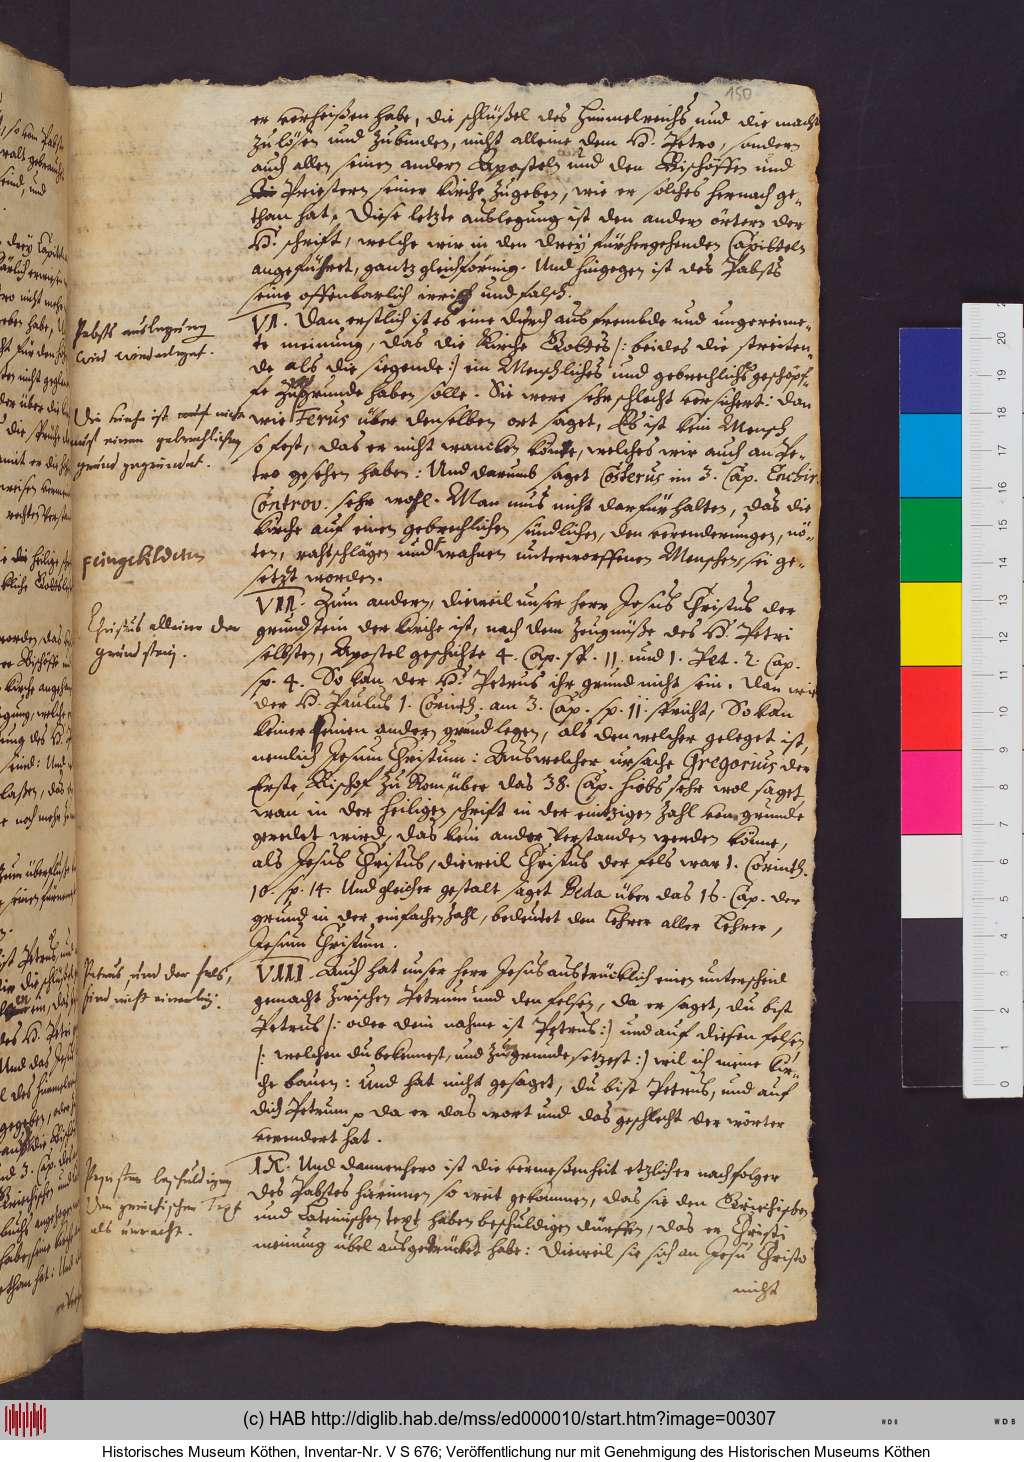 150
er verheißen habe, die schlüßel des Himmelreichs und die macht
zu lösen und zubinden, nicht alleine dem H. Petro, sondern
auch allen seinen andern Aposteln und den Bischöffen und
Priestern seiner Kirche zugeben, wie er solches hernach ge-
than hat. Diese letzte auslegung ist den andern örtern der
H. schrift, welche wir in den drey fürhergehenden Capitteln
angeführet, gantz gleichförmig. Und hingegen ist des Pabsts
seine offenbarlich irrisch und falsch.
Pabsts auslegung
wird wiederleget.
VI. Dan erstlich ist es eine durchaus frembde und ungereime-
te meinung, das die Kirche Gottes /: beides die streiten-
de als die siegende :/ ein Menschliches und gebrechlichs geschöpf-
fe zugrunde haben solle. Sie were sehr schlecht versichert: dan
wie Ferus über denselben ort saget, Es ist kein Mensch
so fest, das er nicht wancken könte, welches wir auch an Pe-
tro gesehen haben: Und darumb saget Costerus im 3. Cap. Enchir.
Controv. sehr wohl. Man mus nicht darfür halten, das die
Kirche auf einen gebrechlichen sündlichen, den verenderungen, nö-
ten, rahtschlägen und wahnen unterworffenen Menschen, sei ge-
setzt worden.
Die kirche ist nicht
auf einen gebrechlichen
grund gegründet.
VII. Zum andern, dieweil unser herr Jesus Christus der
grundstein der Kirche ist, nach dem Zeugnüße des H. Petri
selbsten, Apostel geschichte 4. Cap. sp. 11. und 1. Pet. 2. Cap.
sp. 4. So kan der H. Petrus ihr grund nicht sein. Dan wie
der H. Paulus 1. Corinth. am 3. Cap. sp. 11. spricht, So kan
keiner keinen andern grund legen, als den welcher geleget ist,
nemlich Jesum Christum: Aus welcher ursache Gregorius der
Erste, Bischof zu Rom über das 38. Cap. Hiobs sehr wol saget,
wan in der Heiligen schrift in der eintzigen Zahl vom grunde
geredet wird, das kein ander verstanden werden könne,
als Jesus Christus, dieweil Christus der fels war 1. Corinth.
10. sp. 14. Und gleicher gestalt saget Beda über das 15. Cap. der
grund in der einfachen Zahl, bedeutet den Lehrer aller Lehrer,
Jesum Christum.
Christus alleine der
grund stein.
VIII. Auch hat unser herr Jesus austrücklich einen unterscheid
gemacht zwischen Petrum und den felsen, da er saget, du bist
Petrus /: oder dein nahme ist Petrus :/ und auf diesen felsen
/: welchen du bekennest, und zugrunde setzest :/ wil ich meine Kir-
che bauen: und hat nicht gesaget, du bist Petrus, und auf
dich Petrum, da er das wort und das geschlecht der wörter
verendert hat.
Petrus, und der fels,
sind nicht einerley.
IX. Und dannenhero ist die vermeßenheit etzlicher nachfolger
des Pabstes hierinnen so weit gekommen, das sie den Griechischen
und Lateinischen text haben beschuldigen dürffen, das er Christi
meinung übel ausgedrücket habe: dieweil sie sich an Jesu Christo
nicht
Papisten beschuldigen
den griechischen Text
als unrecht.
(c) HAB http://diglib.hab.de/mss/ed000010/start.htm?image=00307
Historisches Museum Köthen, Inventar-Nr. V S 676; Veröffentlichung nur mit Genehmigung des Historischen Museums Köthen